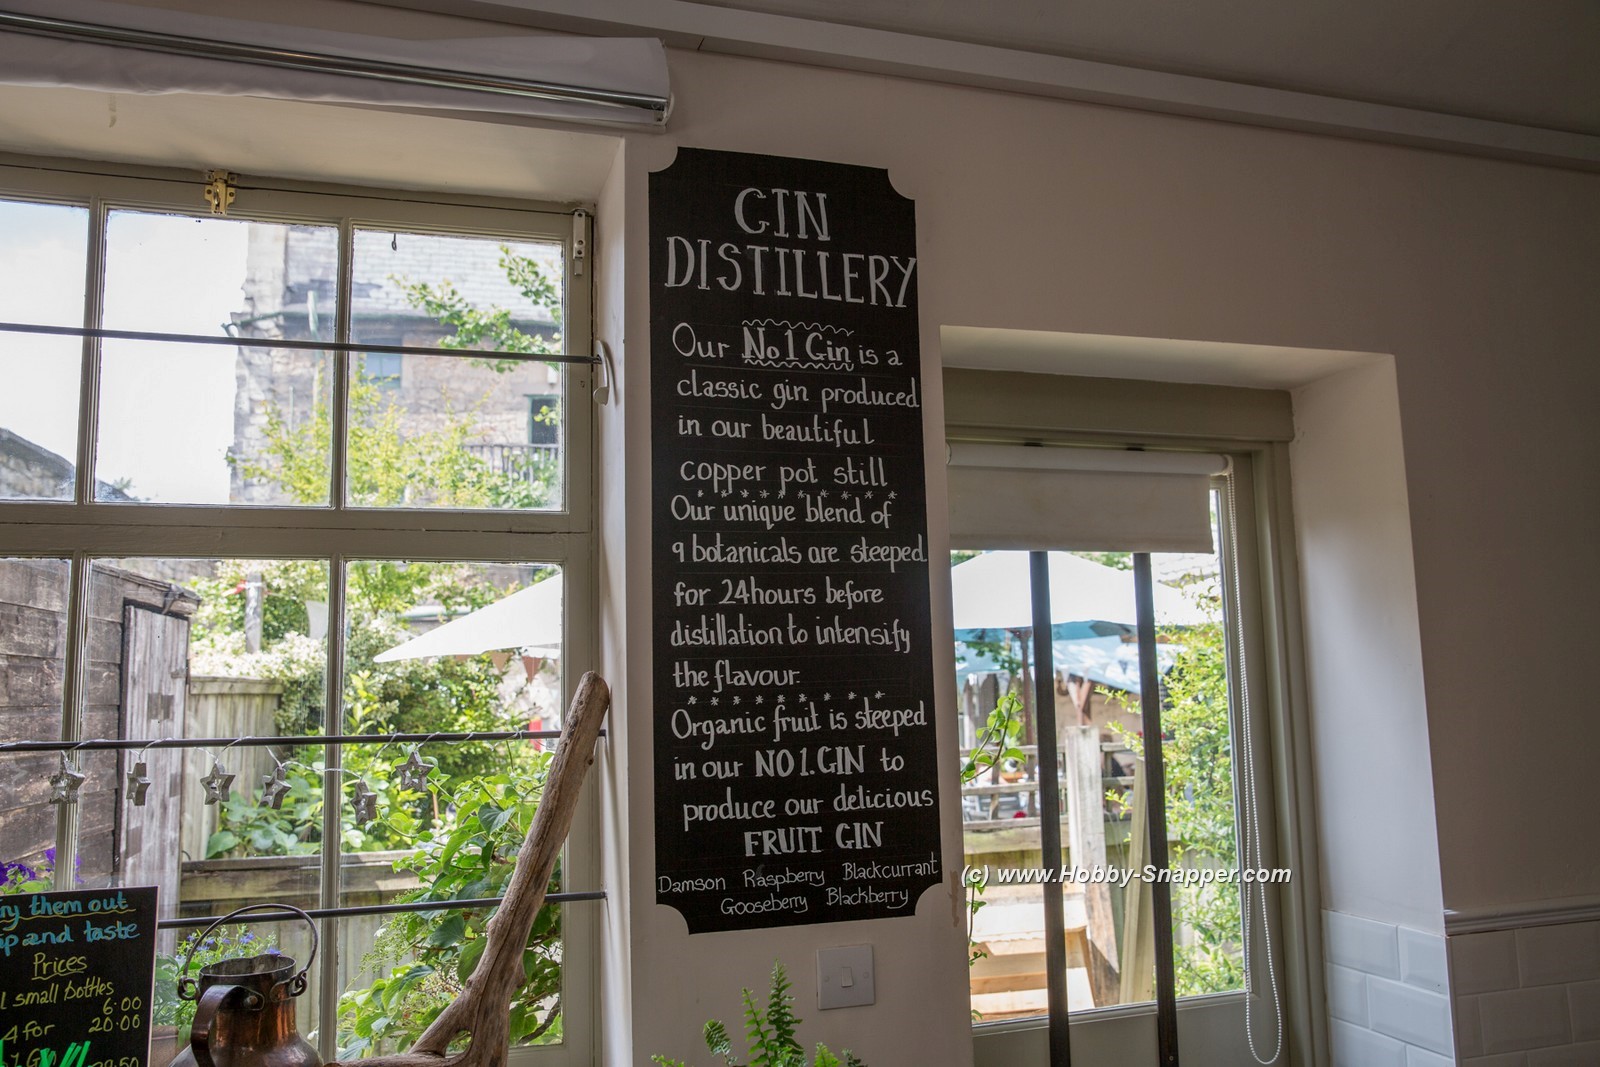 GIN
DISTILLERY
Our No 1 Gin is a
classic gin produced
in our beautiful
copper pot still
Our unique blend of
9 botanicals are steeped
for 24hours before
distillation to intensify
the flavour.
Organic fruit is steeped
in our NO 1. GIN to
produce our delicious
FRUIT GIN
Damson Raspberry Blackcurrant
Gooseberry Blackberry
(c) www.Hobby-Snapper.com
them out
and taste
Prices
small bottles
6.00
4 for 20.00